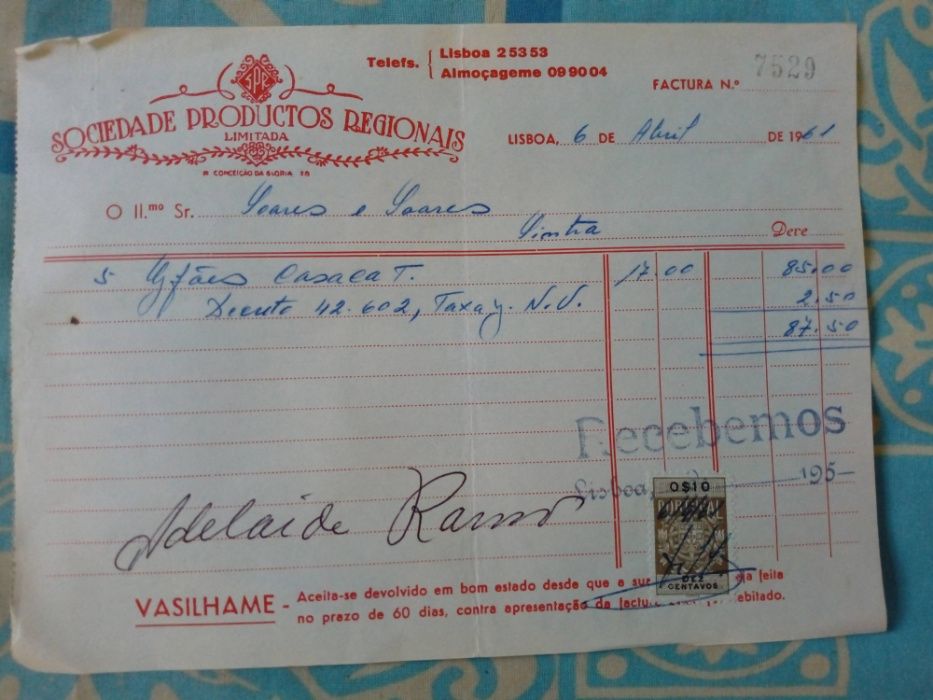 Telefs. { Lisboa 25353
Almoçageme 099004
FACTURA N.º 7529
SPR
SOCIEDADE PRODUCTOS REGIONAIS
LIMITADA
R CONCEIÇÃO DA GLORIA 18
LISBOA, 6 DE Abril DE 1961
O Il.mo Sr. Soares e Soares
Sintra Dere
5 Gfões Casaca T. 17.00 85.00
Decreto 42.602, Taxa N.V. 2.50
87.50
Recebemos
Lisboa, 195-
0$10
Adelaide Ramos
DEZ
CENTAVOS
VASILHAME - Aceita-se devolvido em bom estado desde que a sua feita
no prazo de 60 dias, contra apresentação da factura debitado.